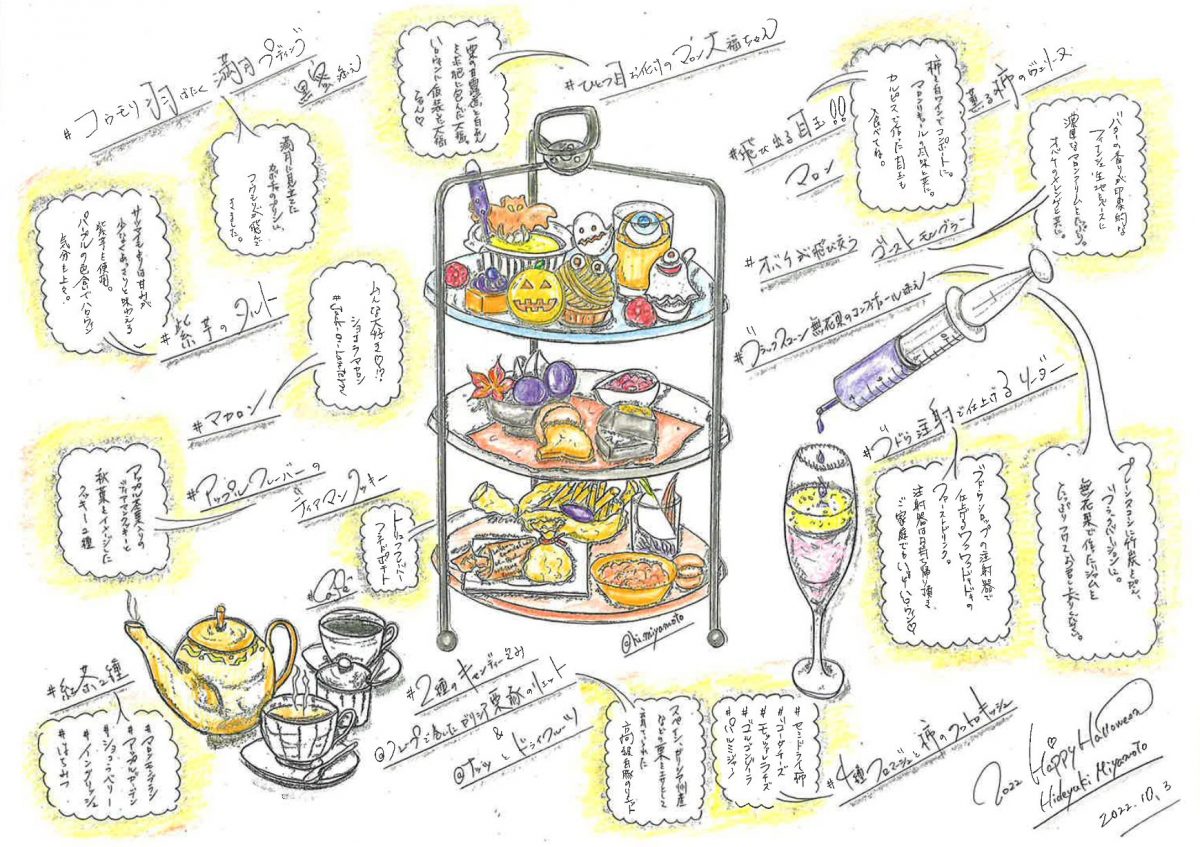 #コウモリ羽ばたく満月プディング
黒蜜添え
満月に見立てた
カボチャのプリンに、
コウモリが飛んで
きました。
#ひとつ目お化けのマロン大福ちゃん
一粒の甘露煮と白あん
を求肥に包んだ大福。
ハロウィンに仮装した大福
ちゃん♡
#飛び出る目玉!!
マロン
薫る柿のヴェリーヌ
柿を白ワインでコンポートに。
マロンリキュールの風味と共に。
カルピスで作った目玉も
食べてね。
#オバケが飛び交う
ゴーストモンブラン
バターの香りが印象的な
フィナンシェ生地をベースに
濃厚なマロンクリームをたっぷり。
オバケのメレンゲと共に。
#紫芋のタルト
サツマイモよりは甘みが
少なくあっさりと味わえる
紫芋を使用。
パープルの色合でハロウィン
気分も上々。
#マカロン
みんな大好き♡!?
ショコラマカロン
#ブラックスコーン無花果のコンフィチュール添え
プレーンスコーンに竹炭を混ぜ、
ブラックバージョンに。
無花果で作ったジャムを
たっぷりつけてお召し上がりください。
#ブドウ注射で仕上げるソーダ
ブドウシロップの注射器で
仕上げるワクワクドキドキの
ファーストドリンク。
注射器はお持ち帰り頂き、
ご家庭でもハッピーハロウィン♡
#アップルフレーバーの
ディアマンクッキー
アップル茶葉入りの
ディアマンクッキーと
秋葉をイメージした
クッキー2種
トリュフフレーバー
フライドポテト
#Cafe
#紅茶2種
#マロクモンブラン
#アッサムカルカッタ
#ジョルジペリー
#イングリッシュ
#はちみつ
#2種のキャンディー包み
@クレープで巻いたガリシア栗豚のリエット
&
@ナッツとドライフルーツ
スペイン、ガリシア州産
などの栗をエサとして
育てられた
高級豚のリエット
#4種フロマージュと柿のプティキッシュ
#セミドライ柿
#ゴーダチーズ
#モッツァレラチーズ
#ゴルゴンゾーラ
#パルミジャーノ
@hi.miyamoto
2022 Happy Halloween
Hideyuki Miyamoto
2022.10.3